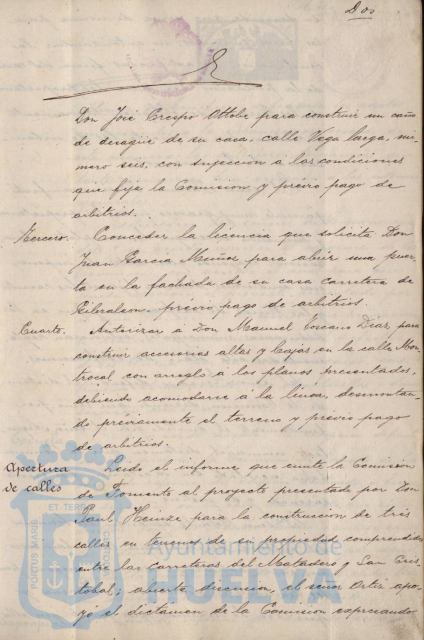 Dos
Don José Crespo Ottobe para construir un caño
de desagüe de su casa, calle Vega larga, nú-
mero seis, con sujeccion a las condiciones
que fija la Comision y prévio pago de
arbitrios.
Tercero. Conceder la licencia que solicita Don
Juan Garcia Muñoz para abrir una puer-
ta en la fachada de su casa carretera de
Gibraleon, prévio pago de arbitrios.
Cuarto. Autorizar á Don Manuel Toscano Diaz, para
construir accesorias altas y bajas en la calle Mon-
trocal con arreglo á los planos presentados,
debiendo acomodarse a la línea, desmontan-
do préviamente el terreno y previo pago
de arbitrios.
Apertura de calles
Leido el informe que emite la Comision
de Fomento al proyecto presentado por Don
Paul Heinze para la construccion de tres
calles en terrenos de su propiedad comprendidos
entre las carreteras del Matadero y San Cris-
tobal; abierta discusion, el señor Ortiz apo-
yó el dictamen de la Comision expresando
Ayuntamiento de
HUELVA
PORTUS MARIS ET TERRAE CUSTODIA